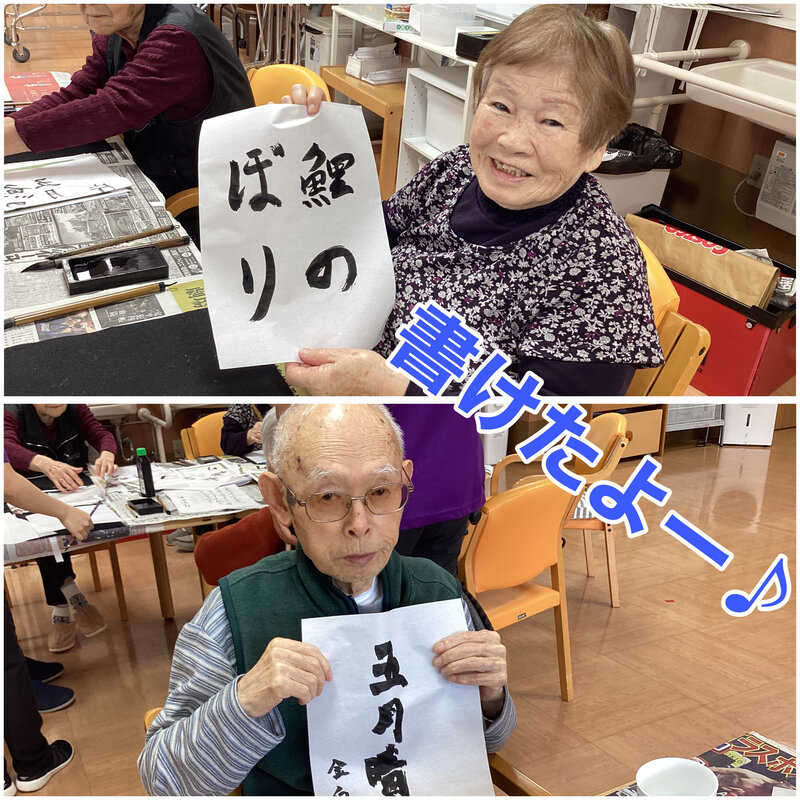 鯉の
ぼり
書けたよー♪
五月晴